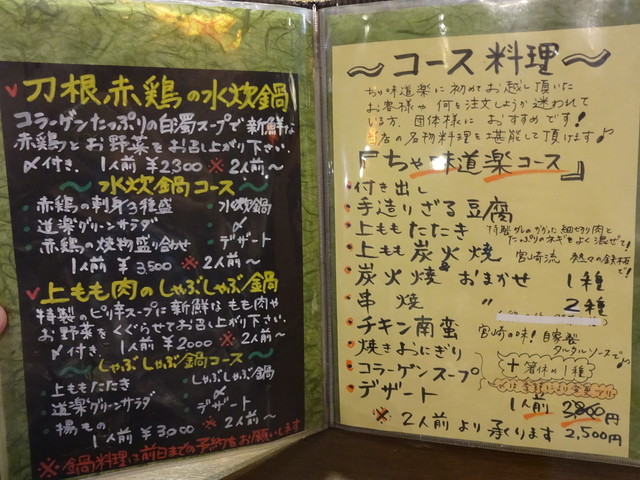 刀根赤鶏の水炊鍋
コラーゲンたっぷりの白濁スープで新鮮な
赤鶏とお野菜をお召し上がり下さい。
〆付き. 1人前 ¥2300 ※2人前〜
〜水炊鍋コース〜
赤鶏の刺身3種盛 ・水炊鍋
道楽グリーンサラダ ・〆
赤鶏の焼物盛り合わせ ・デザート
1人前 ¥3,500 ※2人前〜
上もも肉のしゃぶしゃぶ鍋
特製のピリ辛スープに新鮮なもも肉や
お野菜をくぐらせてお召し上がり下さい。
〆付き. 1人前 ¥2000 ※2人前〜
〜しゃぶしゃぶ鍋コース〜
上ももたたき ・しゃぶしゃぶ鍋
道楽グリーンサラダ ・〆
揚もの ・デザート
1人前 ¥3,000 ※2人前〜
※鍋料理は前日までの予約をお願いします
〜コース料理〜
ちゃ味道楽に初めてお越し頂いた
お客様や何を注文しようか迷われて
いる方、団体様におすすめです!
当店の名物料理を堪能して頂けます♪
『ちゃ味道楽コース』
・付き出し
・手造りざる豆腐
・上ももたたき 特製ダレのかかった細切り肉と
たっぷりのネギをよく混ぜて!
・上もも炭火焼 宮崎流 熱々の鉄板で!
・炭火焼 おまかせ 1種
・串焼 〃 2種
・チキン南蛮 宮崎の味! 自家製
タルタルソースで♪
・焼きおにぎり
・コラーゲンスープ
・デザート
+箸休め1種
1人前 2800円
※2人前より承ります 2,500円